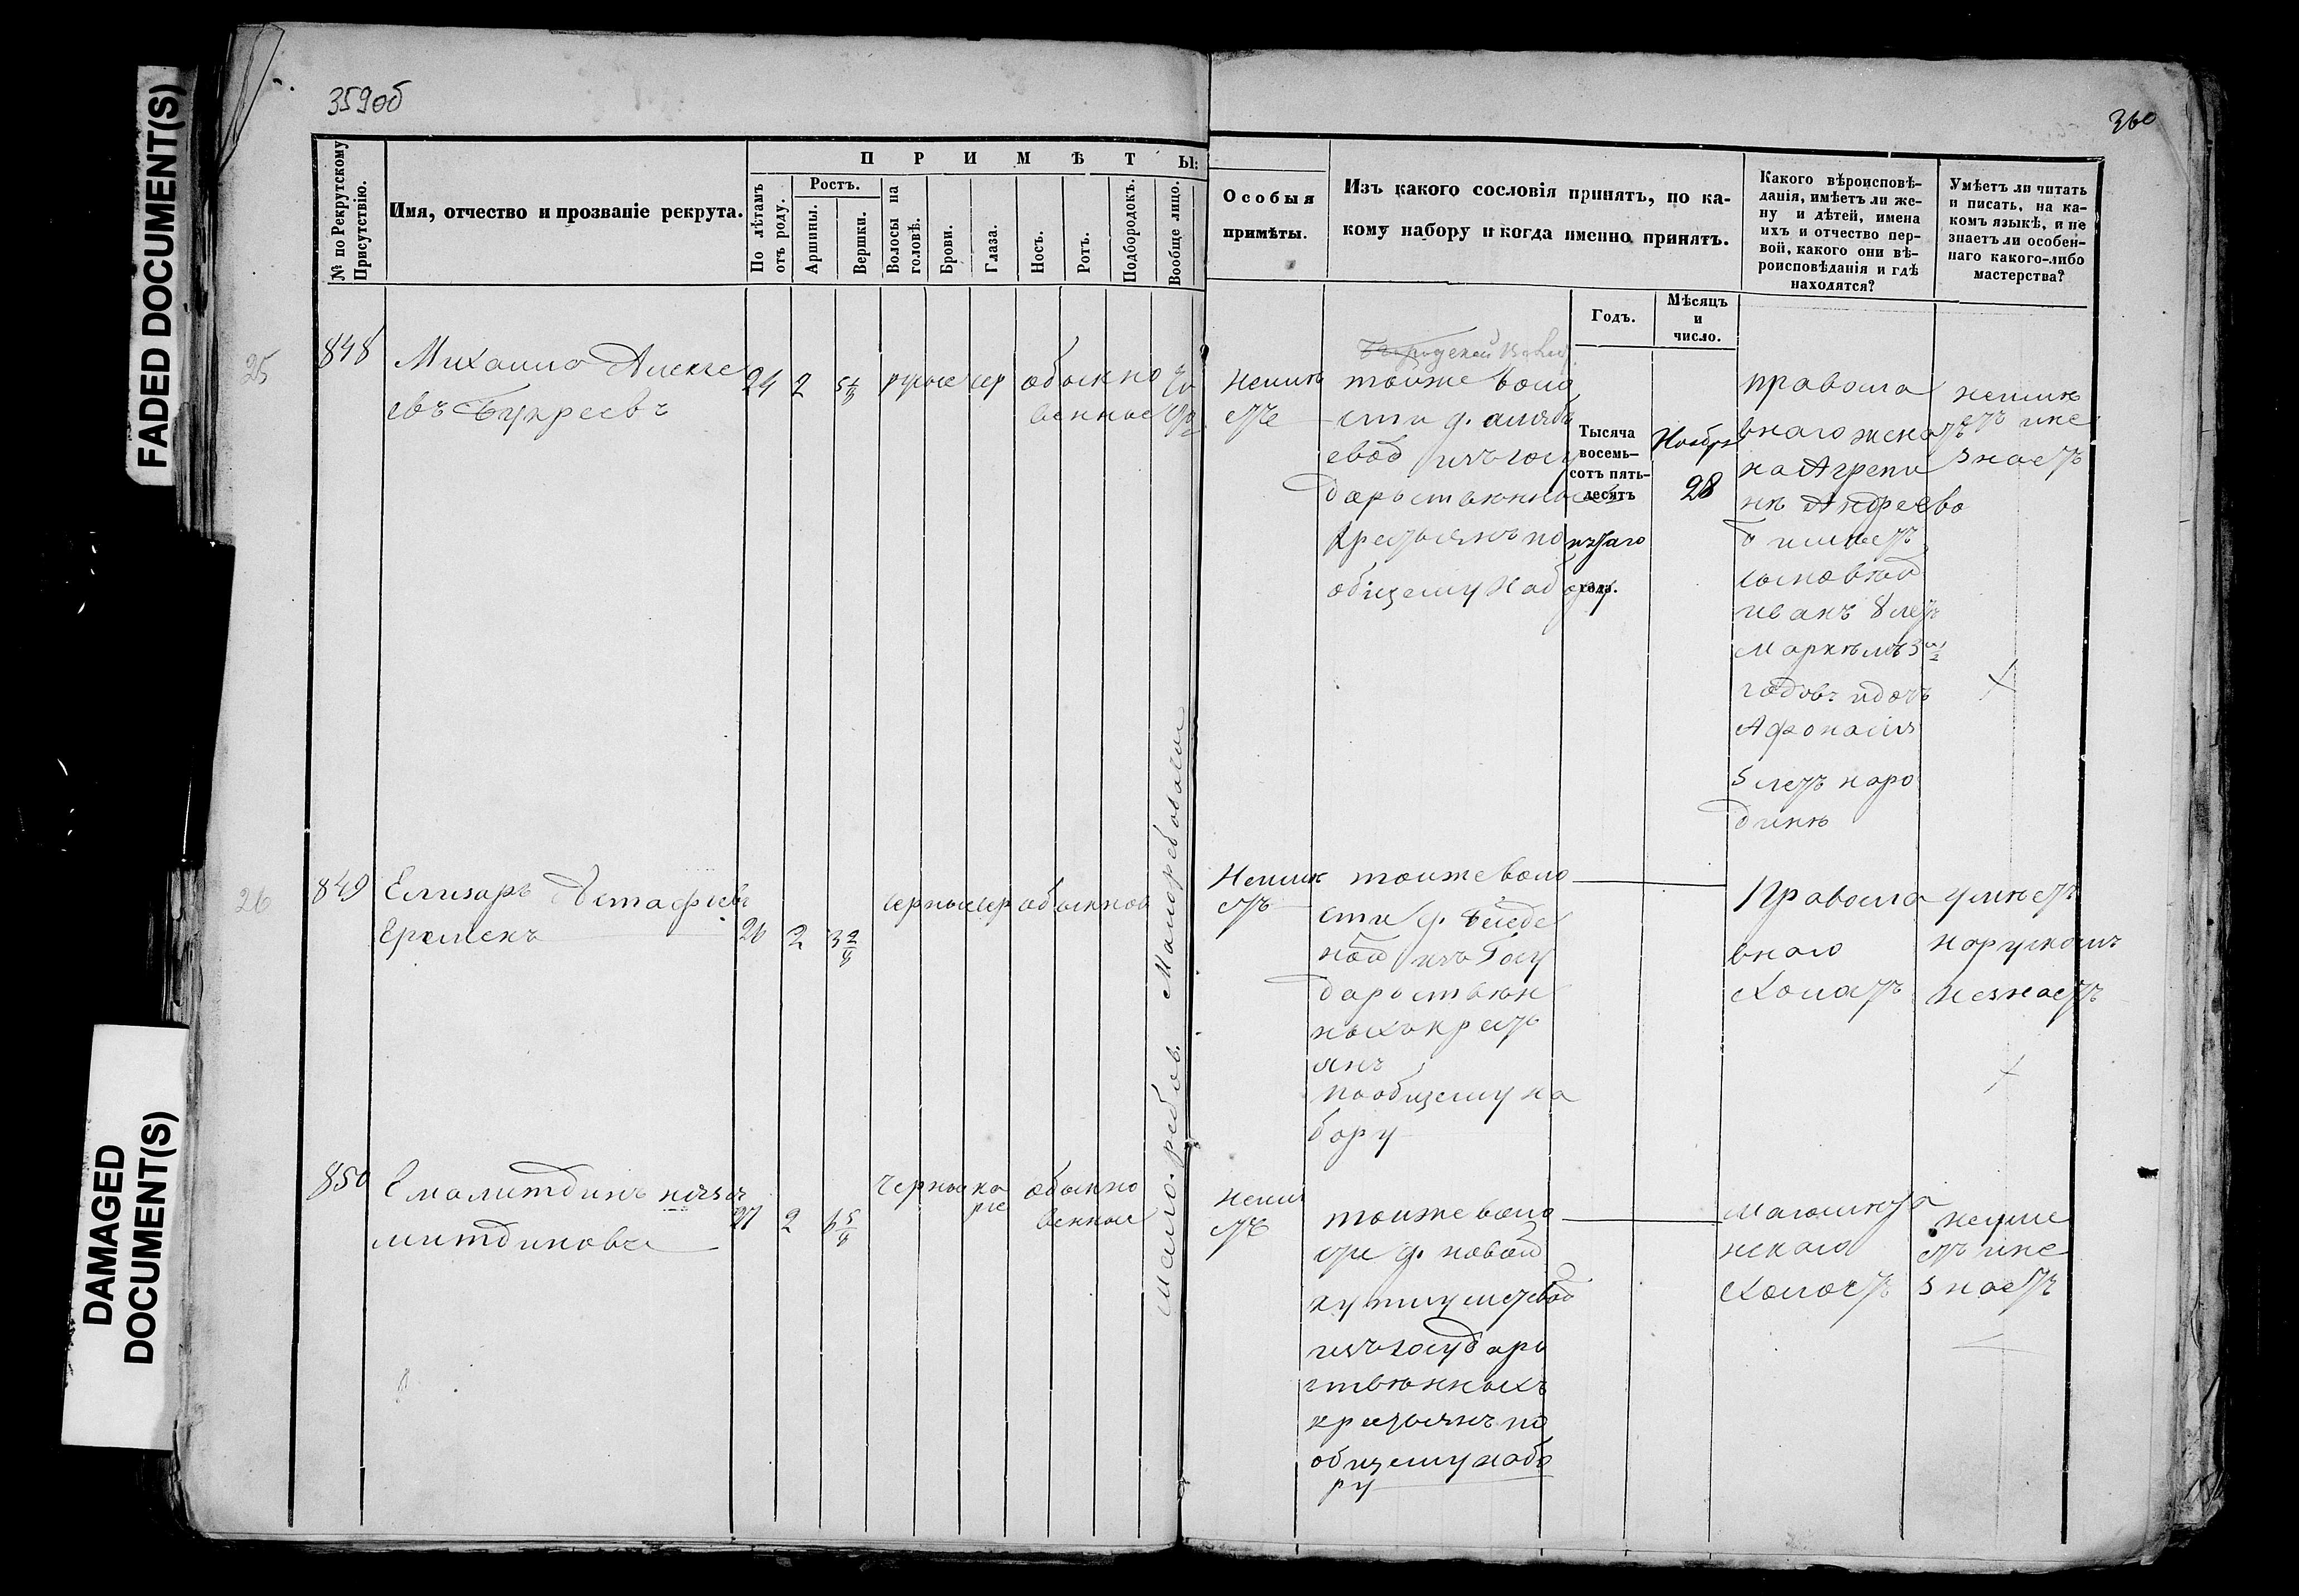 FADED DOCUMENT(S)
DAMAGED
DOCUMENT(S)
359об
360
№ по Рекрутскому
Присутствію.
Имя, отчество и прозваніе рекрута.
П Р И М Ѣ Т Ы:
По лѣтамъ
отъ роду.
Ростъ.
Аршины.
Вершки.
Волосы на
головѣ.
Брови.
Глаза.
Носъ.
Ротъ.
Подбородокъ.
Вообще лицо.
Особыя
примѣты.
Изъ какого сословія принятъ, по ка-
кому набору и когда именно принятъ.
Годъ.
Мѣсяцъ
и
число.
Какого вѣроисповѣ-
данія, имѣетъ ли же-
ну и дѣтей, имена
ихъ и отчество пер-
вой, какого они вѣ-
роисповѣданія и гдѣ
находятся?
Умѣетъ ли читать
и писать, на ка-
комъ языкѣ, и не
знаетъ ли особен-
наго какого-либо
мастерства?
25
848
Михаило Алексе
евъ Букреевъ
24 2
русые сер обыкно
венные
неимѣ
етъ
тоиже воло
сти д.
изъ госу
дарствѣнных
крестьянъ по
общему набору
Тысяча
восемь-
сотъ пять-
десятъ
пятаго
года.
Ноября
28
правосла
внаго женатъ
на Агрепи
нѣ Андреево
й имѣетъ
сыновѣй
иванъ 8 летъ
маркѣлъ 3 1/2
годовъ и дочь
Афонасия
5 летъ наро
динѣ
неумѣ
етъ ине
знаетъ
26
849
Елизаръ Астафиевъ
Еремекъ
26 2 3 2/8
серные сер обыкнов
Неимѣ
етъ
тоиже воло
сти д.
ной изъ Госу
дарствѣн
ныхъ крестъ
янъ
по общему на
бору
Правосла
внаго
Холатъ
умѣетъ
норускомъ
незнаетъ
850
27 2 6 5/8
черные ка
рие
обыкно
венные
неимѣ
етъ
тоиже воло
сти д. новой
изъ государ
ствѣнныхъ
крестьянъ по
общему набо
ру
магомѣта
нскаго
Холостъ
неуме
етъ ине
знаетъ